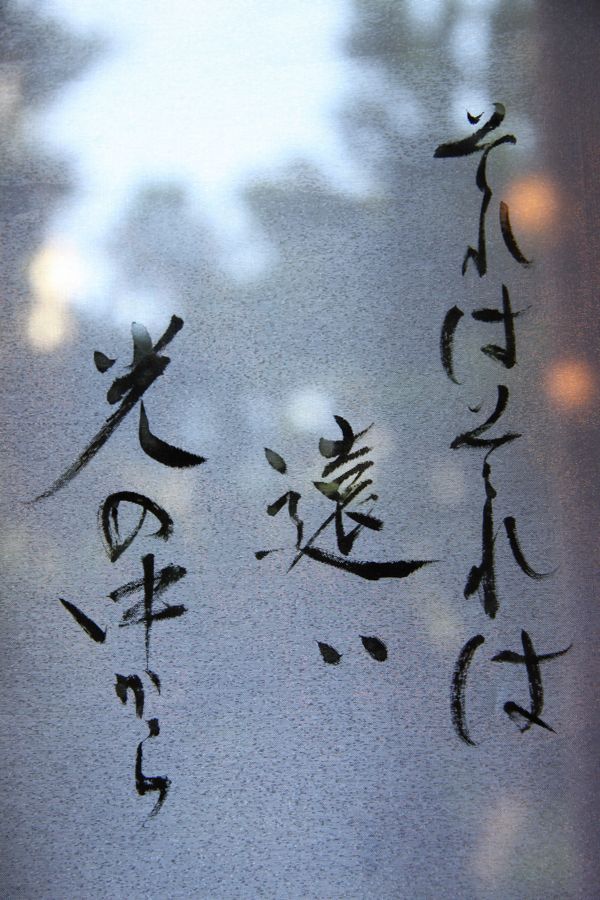 それはそれは
遠い
光の中から